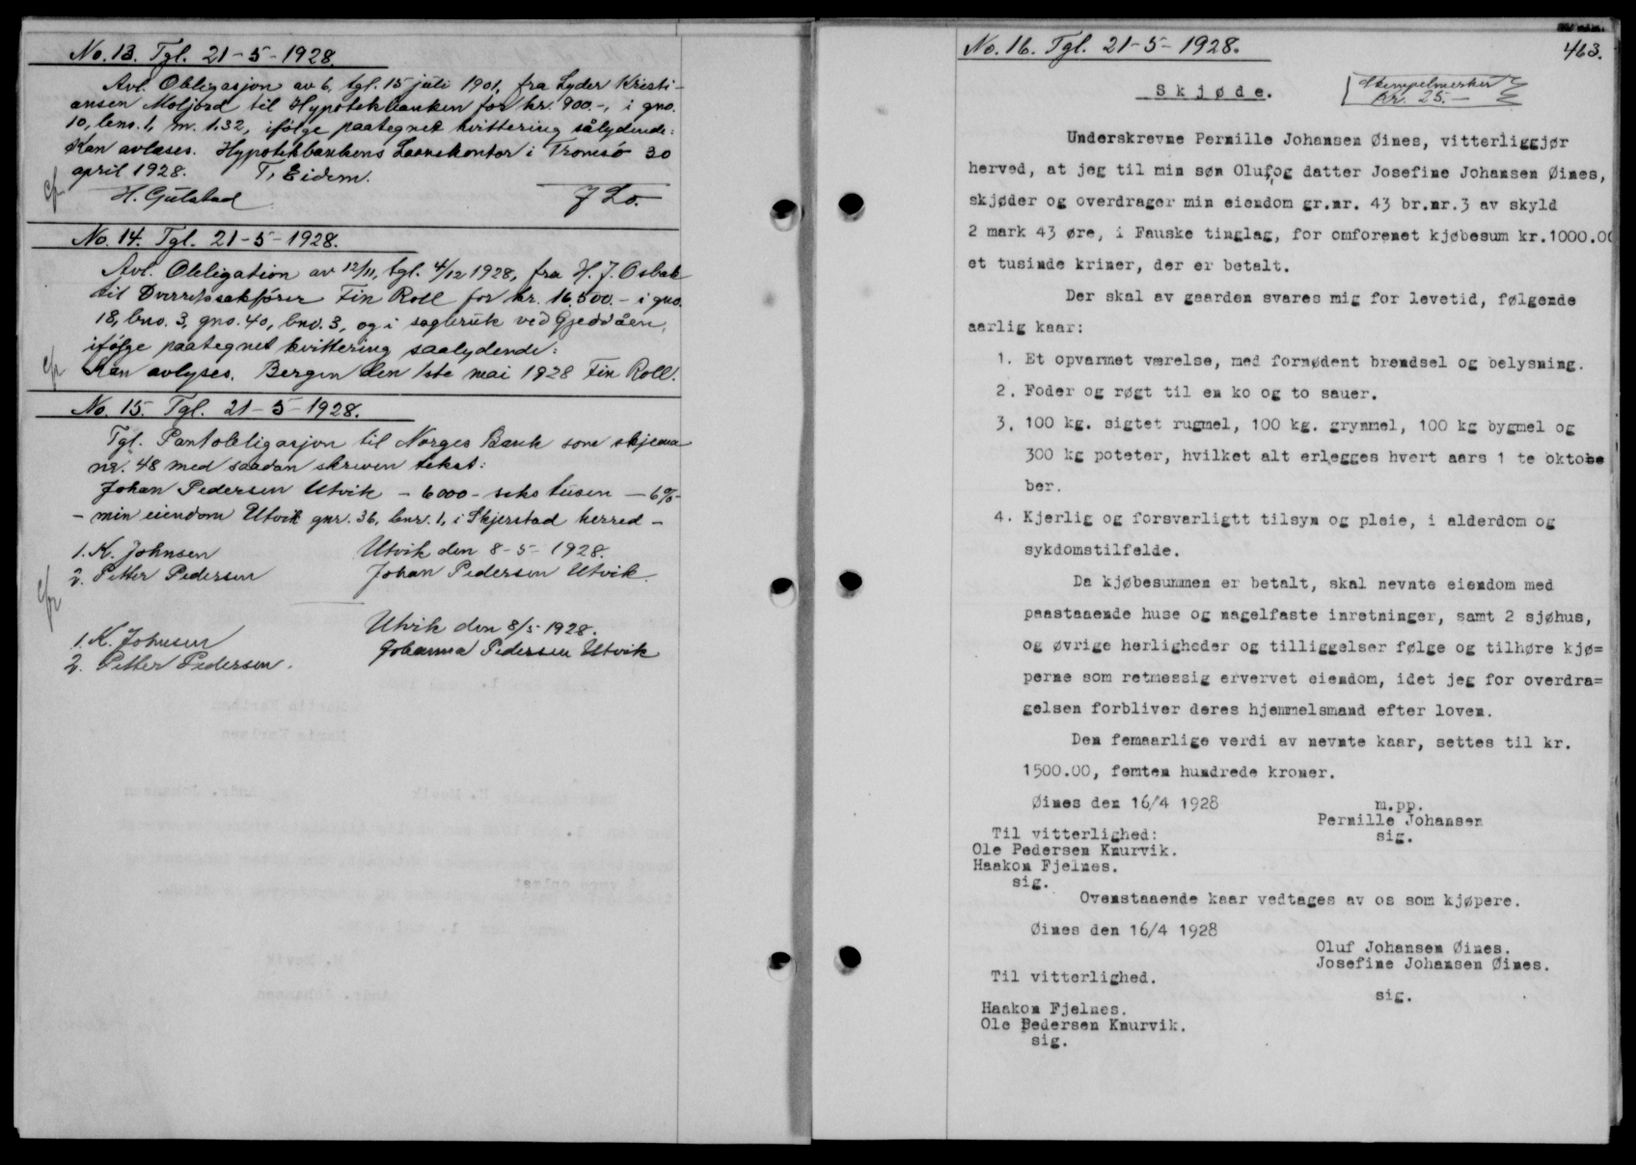 No. 13. Tgl. 21-5-1928.
Avl. Obligasjon av 6, tgl. 15 juli 1901, fra Lyder Kristi-
ansen Moljord til Hypotekbanken for kr. 900.-, i gno.
10, bno. 1, m. 1.32, ifølge paategnet kvittering sålydende:
Kan avlæses. Hypotekbankens Laanekontor i Tromsö 30
april 1928. T. Eidem.
H. Gulstad
No. 14. Tgl. 21-5-1928.
Avl. Obligation av 12/11, tgl. 4/12 1928, fra H. J. Osbak
til Overretssakfører Fin Roll for kr. 16.500.- i gno.
18, bno. 3, gno. 40, bno. 3, og i sagbruk ved Gjeddåen,
ifølge paategnet kvittering saalydende:
Kan avlyses. Bergen den 1ste mai 1928 Fin Roll.
No. 15. Tgl. 21-5-1928.
Tgl. Pantobligasjon til Norges Bank som skjema
nr. 48 med saadan skreven tekst:
Johan Pedersen Utvik - 6000 - seks tusen - 6%-
- min eiendom Utvik gnr. 36, bnr. 1, i Skjerstad herred -
1. K. Johnsen Utvik den 8-5-1928.
2. Petter Pedersen Johan Pedersen Utvik.
Utvik den 8/5-1928.
1. K. Johnsen Johanna Pedersen Utvik
2. Petter Pedersen.
No. 16. Tgl. 21-5-1928. 463.
Stempelmerker
Kr. 25.-
Skjøde.
Underskrevne Pernille Johansen Øines, vitterliggjør
herved, at jeg til min søn Oluf, og datter Josefine Johansen Øines,
skjøder og overdrager min eiendom gr.nr. 43 br.nr. 3 av skyld
2 mark 43 øre, i Fauske tinglag, for omforenet kjøbesum kr.1000.00
et tusinde kriner, der er betalt.
Der skal av gaarden svares mig for levetid, følgende
aarlig kaar:
1. Et opvarmet værelse, med fornødent brendsel og belysning.
2. Foder og røgt til en ko og to sauer.
3. 100 kg. sigtet rugmel, 100 kg. grynmel, 100 kg bygmel og
300 kg poteter, hvilket alt erlegges hvert aars 1 te oktobe
ber.
4. Kjerlig og forsvarligtt tilsyn og pleie, i alderdom og
sykdomstilfelde.
Da kjøbesummen er betalt, skal nevnte eiendom med
paastaaende huse og nagelfaste inretninger, samt 2 sjøhus,
og øvrige herligheder og tilliggelser følge og tilhøre kjø=
perne som retmessig ervervet eiendom, idet jeg for overdra=
gelsen forbliver deres hjemmelsmand efter loven.
Den femaarlige verdi av nevnte kaar, settes til kr.
1500.00, femten hundrede kroner.
Øines den 16/4 1928 m.pp.
Pernille Johansen
Til vitterlighed: sig.
Ole Pedersen Knurvik.
Haakon Fjelnes.
sig.
Ovenstaaende kaar vedtages av os som kjøpere.
Øines den 16/4 1928
Oluf Johansen Øines.
Josefine Johansen Øines.
Til vitterlighed.
sig.
Haakon Fjelnes.
Ole Pedersen Knurvik.
sig.